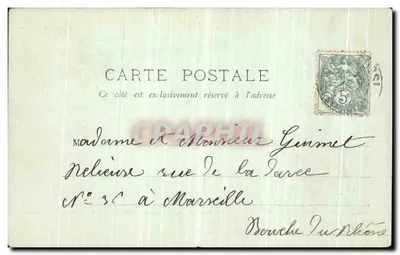 CARTE POSTALE
Ce côté est exclusivement réservé à l'adresse
5
Madame & Monsieur Guimet
Relieuse rue de la Darce
N° 36 à Marseille
Bouche du Rhône